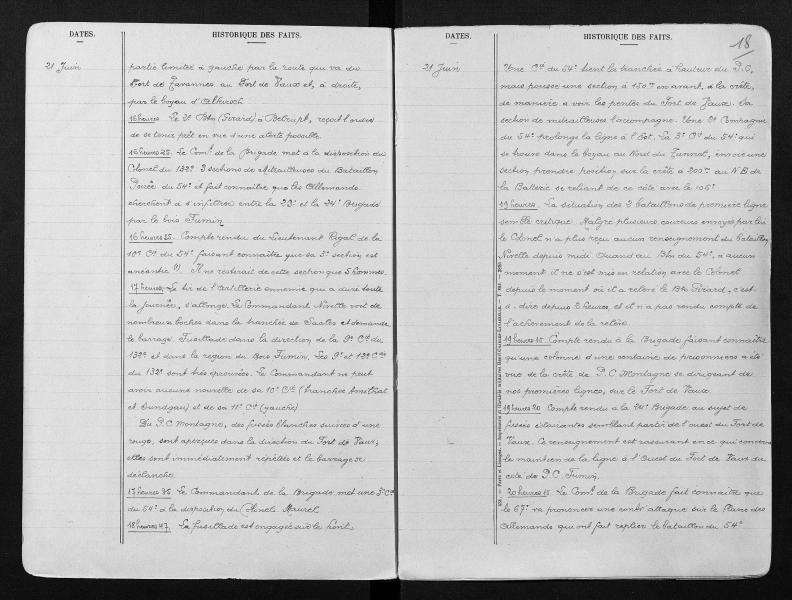 DATES.
HISTORIQUE DES FAITS.
21 Juin
partie limitée à gauche par la route qui va du
Fort de Tavannes au Fort de Vaux et, à droite,
par le boyau d'Altkirch
16 heures. Le 2e Btn (Girard) à Belrupt, reçoit l'ordre
de se tenir prêt en vue d'une alerte possible.
16 heures 25. Le Comt de la Brigade met à la disposition du
Colonel du 132e 3 sections de Mitrailleuses du Bataillon
Poirée du 54e et fait connaître que les Allemands
cherchent à s'infiltrer entre la 23e et la 24e Brigade
par le bois Fumin
16 heures 35. Compte rendu du Lieutenant Rigal de la
10e Cie du 54e faisant connaître que sa 3e section est
anéantie Il ne resterait de cette section que 5 hommes.
17 heures. Le tir de l'artillerie ennemie qui a duré toute
la journée, s'allonge. Le Commandant Nivelle voit de
nombreux boches dans la tranchée de Saales et demande
le barrage. Fusillade dans la direction de la 9e Cie du
132e et dans la région du Bois Fumin. Les 9e et 12e Cies
du 132e sont très éprouvées. Le Commandant ne peut
avoir aucune nouvelle de sa 10e Cie (tranchée
et Sundgau) et de sa 11e Cie (gauche)
Du P.C. Montagne, des fusées blanches suivies d'une
rouge, sont aperçues dans la direction du Fort de Vaux;
elles sont immédiatement répétées et le barrage se
déclanche.
17 heures 35 Le Commandant de la Brigade met une 3e Cie
du 54e à la disposition du Colonel Maurel
18 heures 47. La fusillade est engagée sur le front.
DATES.
HISTORIQUE DES FAITS.
18
21 Juin
Une Cie du 54e tient la tranchée à hauteur du P.C,
mais pousse une section à 150m en avant, à la crête,
de manière à voir les pentes du Fort de Vaux. La
section de mitrailleuse l'accompagne. Une 2e Compagnie
du 54e prolonge la ligne à l'Est. La 3e Cie du 54e qui
se trouve dans le boyau au Nord du Tunnel, envoie une
section prendre position sur la crête à 200m au N.E de
la Batterie se reliant de ce côté avec le 106e
19 heures. La situation des 2 bataillons de première ligne
semble critique. Malgré plusieurs coureurs envoyés par lui
le Colonel n'a plus reçu aucun renseignement du bataillon
Nivelle depuis midi Quand au Btn du 54e, à aucun
moment il ne s'est mis en relation avec le Colonel
depuis le moment où il a relevé le Btn Girard, c'est
à. dire depuis 2 heures, et il n'a pas rendu compte de
l'achèvement de la relève.
19 heures 15 Compte rendu à la Brigade faisant connaître
qu'une colonne d'une centaine de prisonniers a été
vue de la crête de P.C Montagne se dirigeant de
nos premières lignes, sur le Fort de Vaux
19 heures 20 Compte rendu à la 24e Brigade au sujet de
fusées éclairantes semblant partir de l'ouest du Fort de
Vaux. Ce renseignement est rassurant en ce qui concerne
le maintien de la ligne à l'Ouest du Fort de Vaux du
côté de P.C Fumin.
20 heures 15 Le Comt de la Brigade fait connaître que
le 67e va prononcer une contr'attaque sur le flanc des
Allemands qui ont fait replier le bataillon du 54e